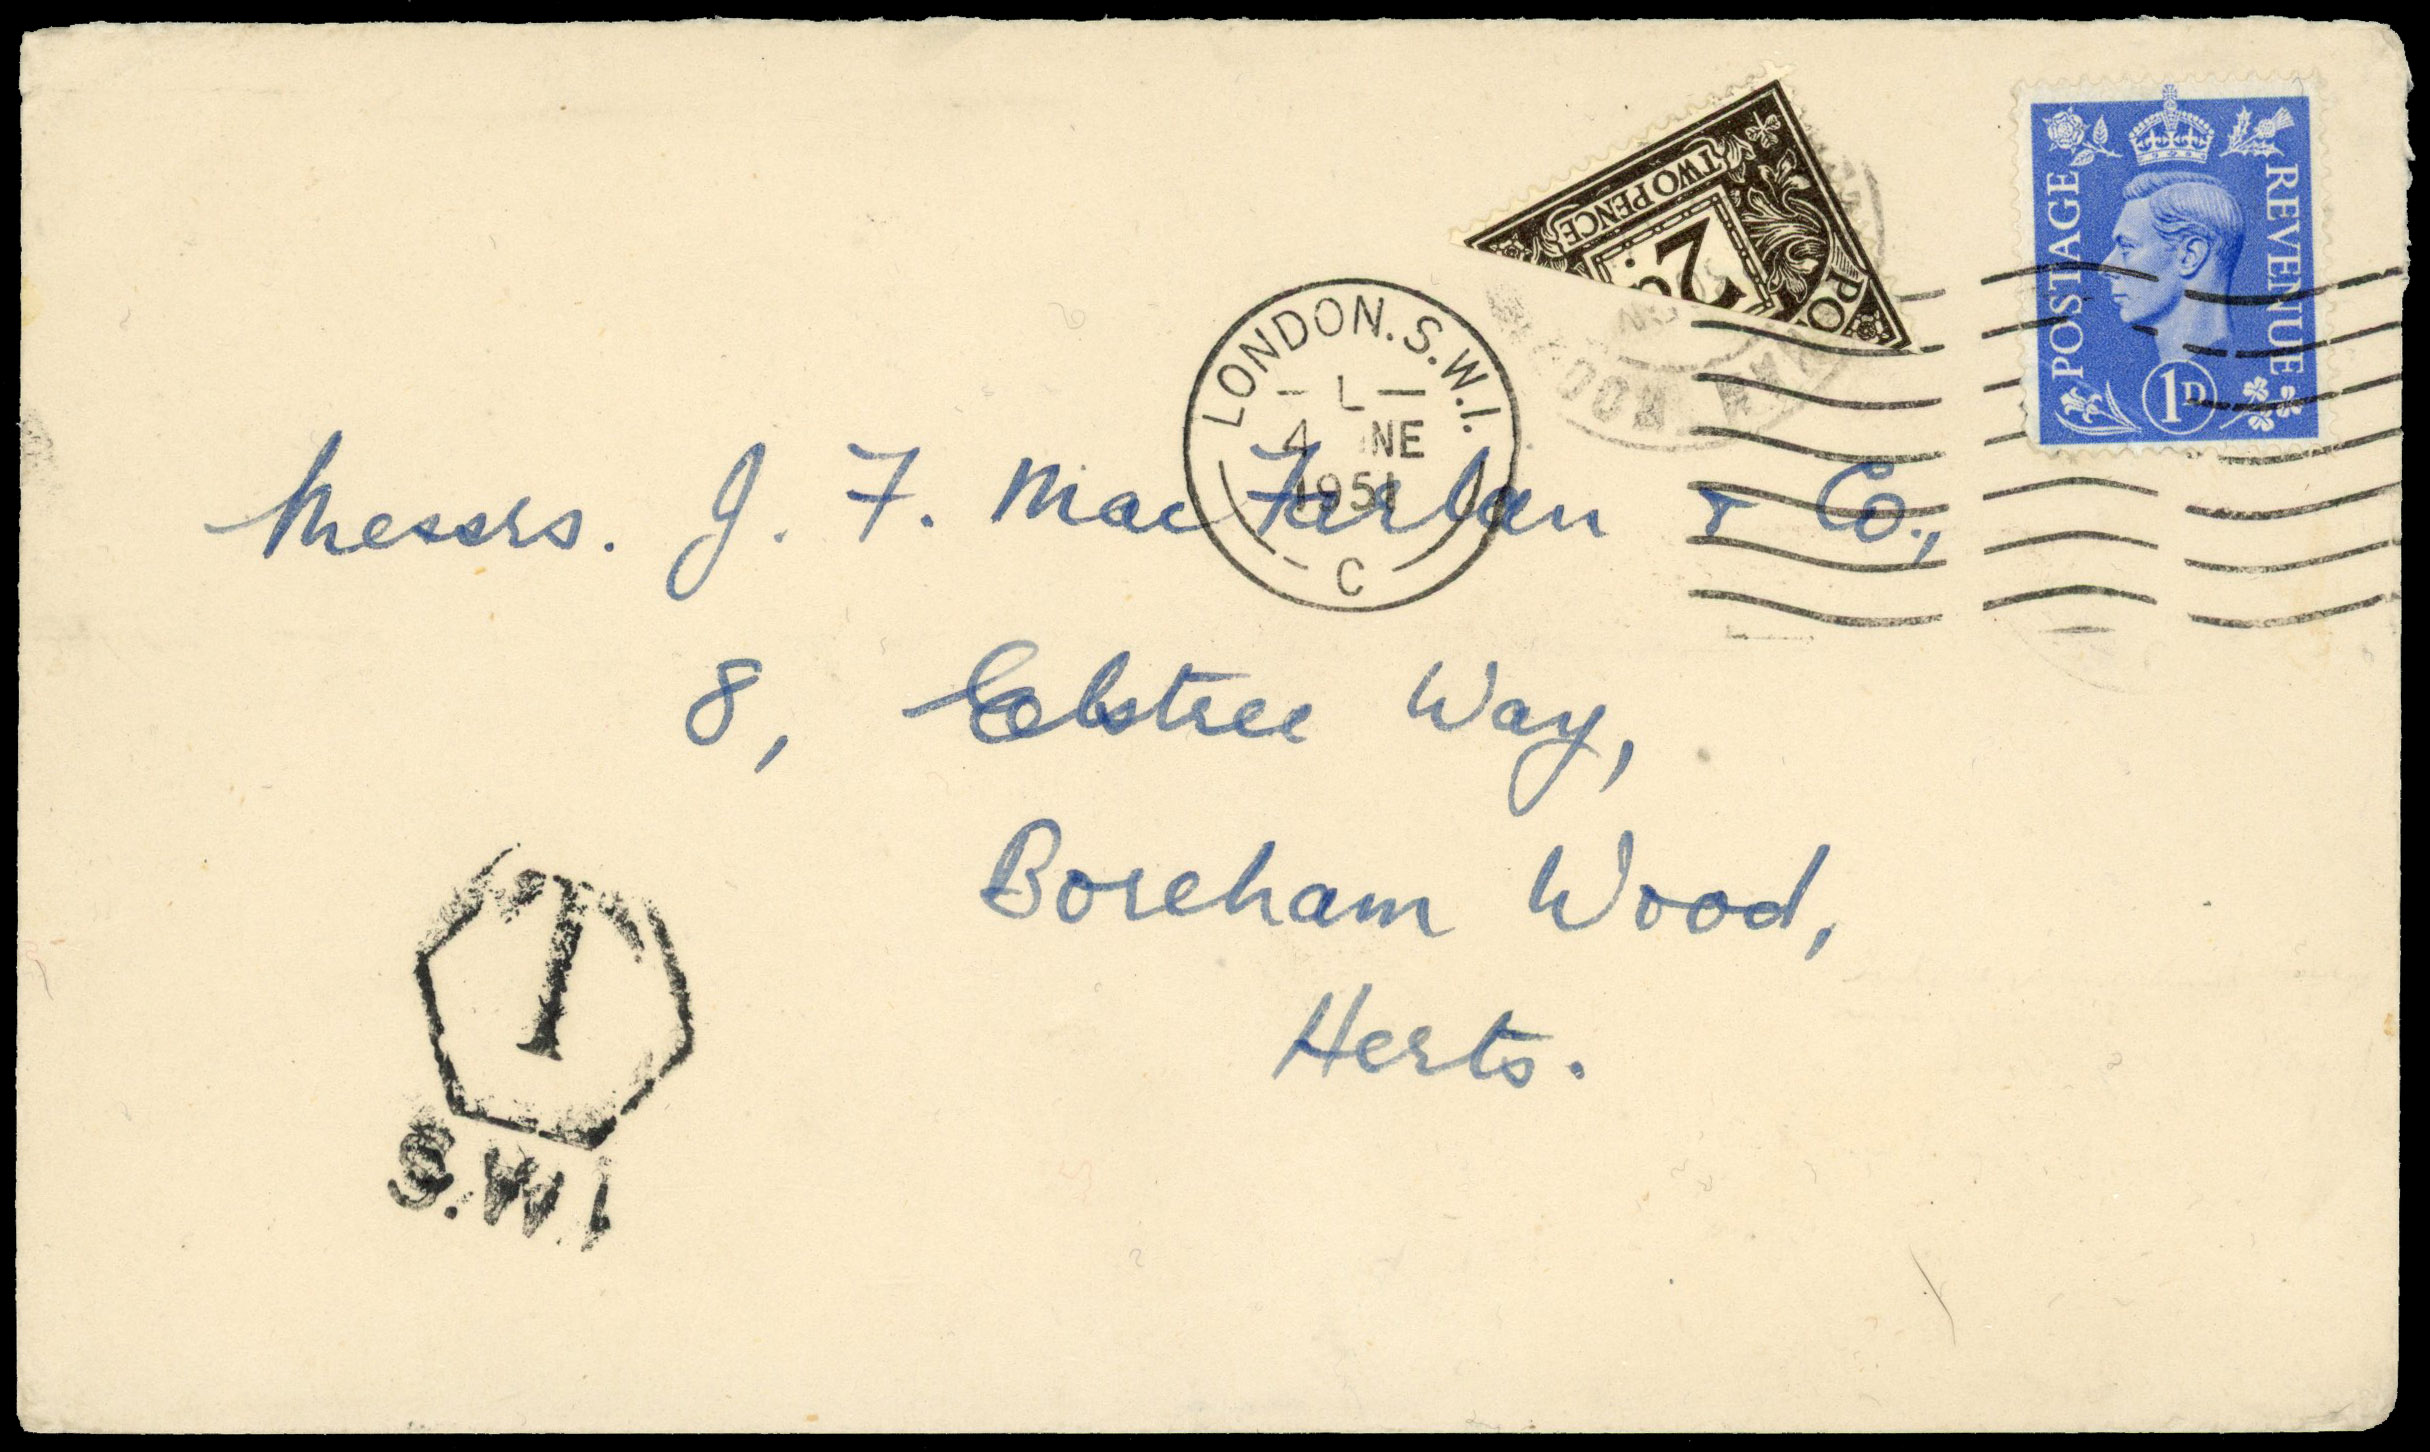 TWO PENCE
2D.
PO
POSTAGE
REVENUE
1D
LONDON.S.W.1.
- L -
4 NE
1951
C
Messrs. J. F. MacFarlan & Co.,
8, Elstree Way,
Boreham Wood,
Herts.
1
S.W.1